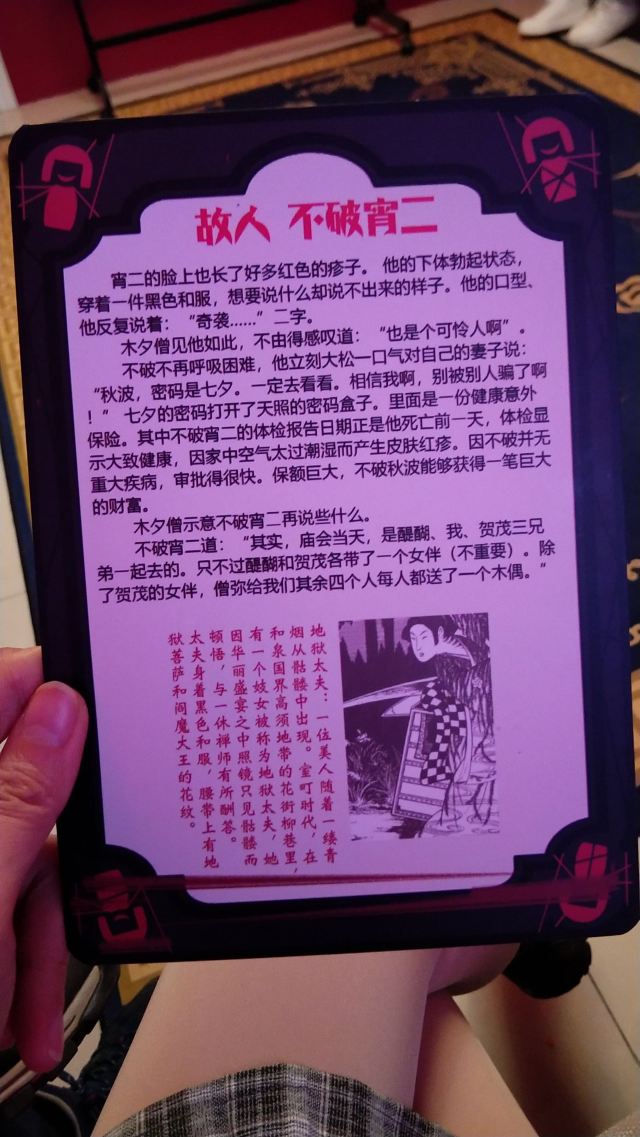 故人 不破宵二
宵二的脸上也长了好多红色的疹子。他的下体勃起状态，
穿着一件黑色和服，想要说什么却说不出来的样子。他的口型、
他反复说着：“奇袭……”二字。
木夕僧见他如此，不由得感叹道：“也是个可怜人啊”。
不破不再呼吸困难，他立刻大松一口气对自己的妻子说：
“秋波，密码是七夕。一定去看看。相信我啊，别被别人骗了啊
！”七夕的密码打开了天照的密码盒子。里面是一份健康意外
保险。其中不破宵二的体检报告日期正是他死亡前一天，体检显
示大致健康，因家中空气太过潮湿而产生皮肤红疹。因不破并无
重大疾病，审批得很快。保额巨大，不破秋波能够获得一笔巨大
的财富。
木夕僧示意不破宵二再说些什么。
不破宵二道：“其实，庙会当天，是醍醐、我、贺茂三兄
弟一起去的。只不过醍醐和贺茂各带了一个女伴（不重要）。除
了贺茂的女伴，僧弥给我们其余四个人每人都送了一个木偶。”
地狱太夫：一位美人随着一缕青
烟从骷髅中出现。室町时代，在
和泉国界高须地带的花街柳巷里，
有一个妓女被称为地狱太夫，她
因华丽盛宴之中照镜只见骷髅而
顿悟，与一休禅师有所酬答。
太夫身着黑色和服，腰带上有地
狱菩萨和阎魔大王的花纹。